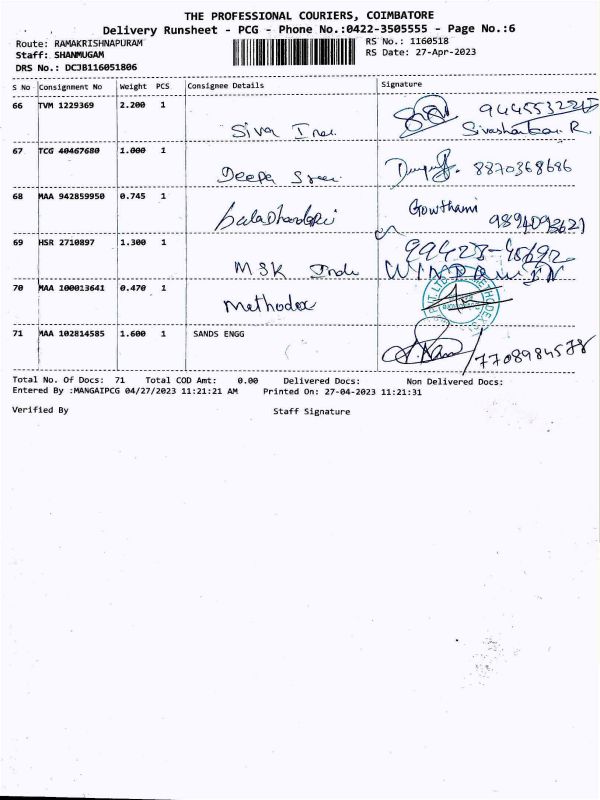 THE PROFESSIONAL COURIERS, COIMBATORE
Delivery Runsheet - PCG - Phone No.:0422-3505555 - Page No.:6
Route: RAMAKRISHNAPURAM
RS No.: 1160518
Staff: SHANMUGAM
RS Date: 27-Apr-2023
DRS No.: DCJB116051806
S No Consignment No Weight PCS Consignee Details Signature
66 TVM 1229369 2.200 1
Siva
Sivashankar R.
67 TCG 40467680 1.000 1
Deepa 8870368686
68 MAA 942859950 0.745 1
Gowthami
9894093621
69 HSR 2710897 1.300 1
MSK
70 MAA 100013641 0.470 1
Methodex
71 MAA 102814585 1.600 1 SANDS ENGG
7708984578
Total No. Of Docs: 71 Total COD Amt: 0.00 Delivered Docs: Non Delivered Docs:
Entered By :MANGAIPCG 04/27/2023 11:21:21 AM Printed On: 27-04-2023 11:21:31
Verified By Staff Signature